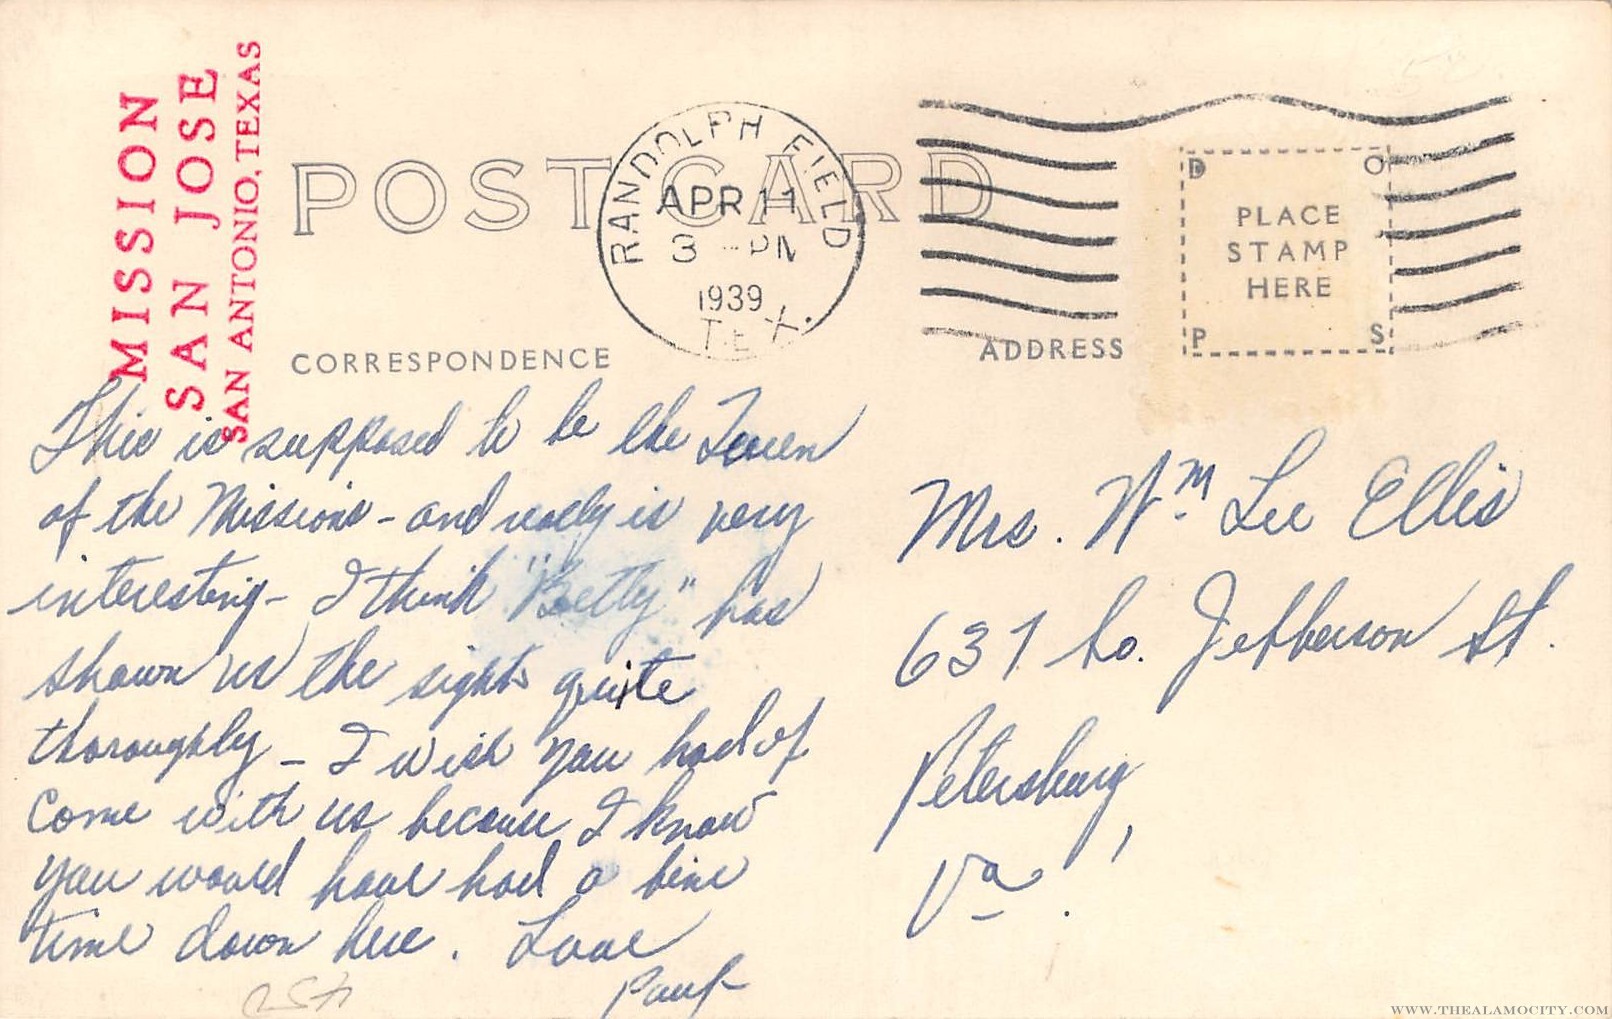 MISSION
SAN JOSE
SAN ANTONIO, TEXAS
POST CARD
RANDOLPH FIELD
APR 11
3 - PM
1939
TEX.
D O
PLACE
STAMP
HERE
P S
CORRESPONDENCE
ADDRESS
This is supposed to be the Queen
of the Missions - and really is very
interesting - I think "Betty" has
shown us the sights quite
thoroughly - I wish you had of
come with us because I know
you would have had a fine
time down here. Love
Mrs. Wm Lee Ellis
637 So. Jefferson St.
Petersburg,
Va.
WWW.THEALAMOCITY.COM